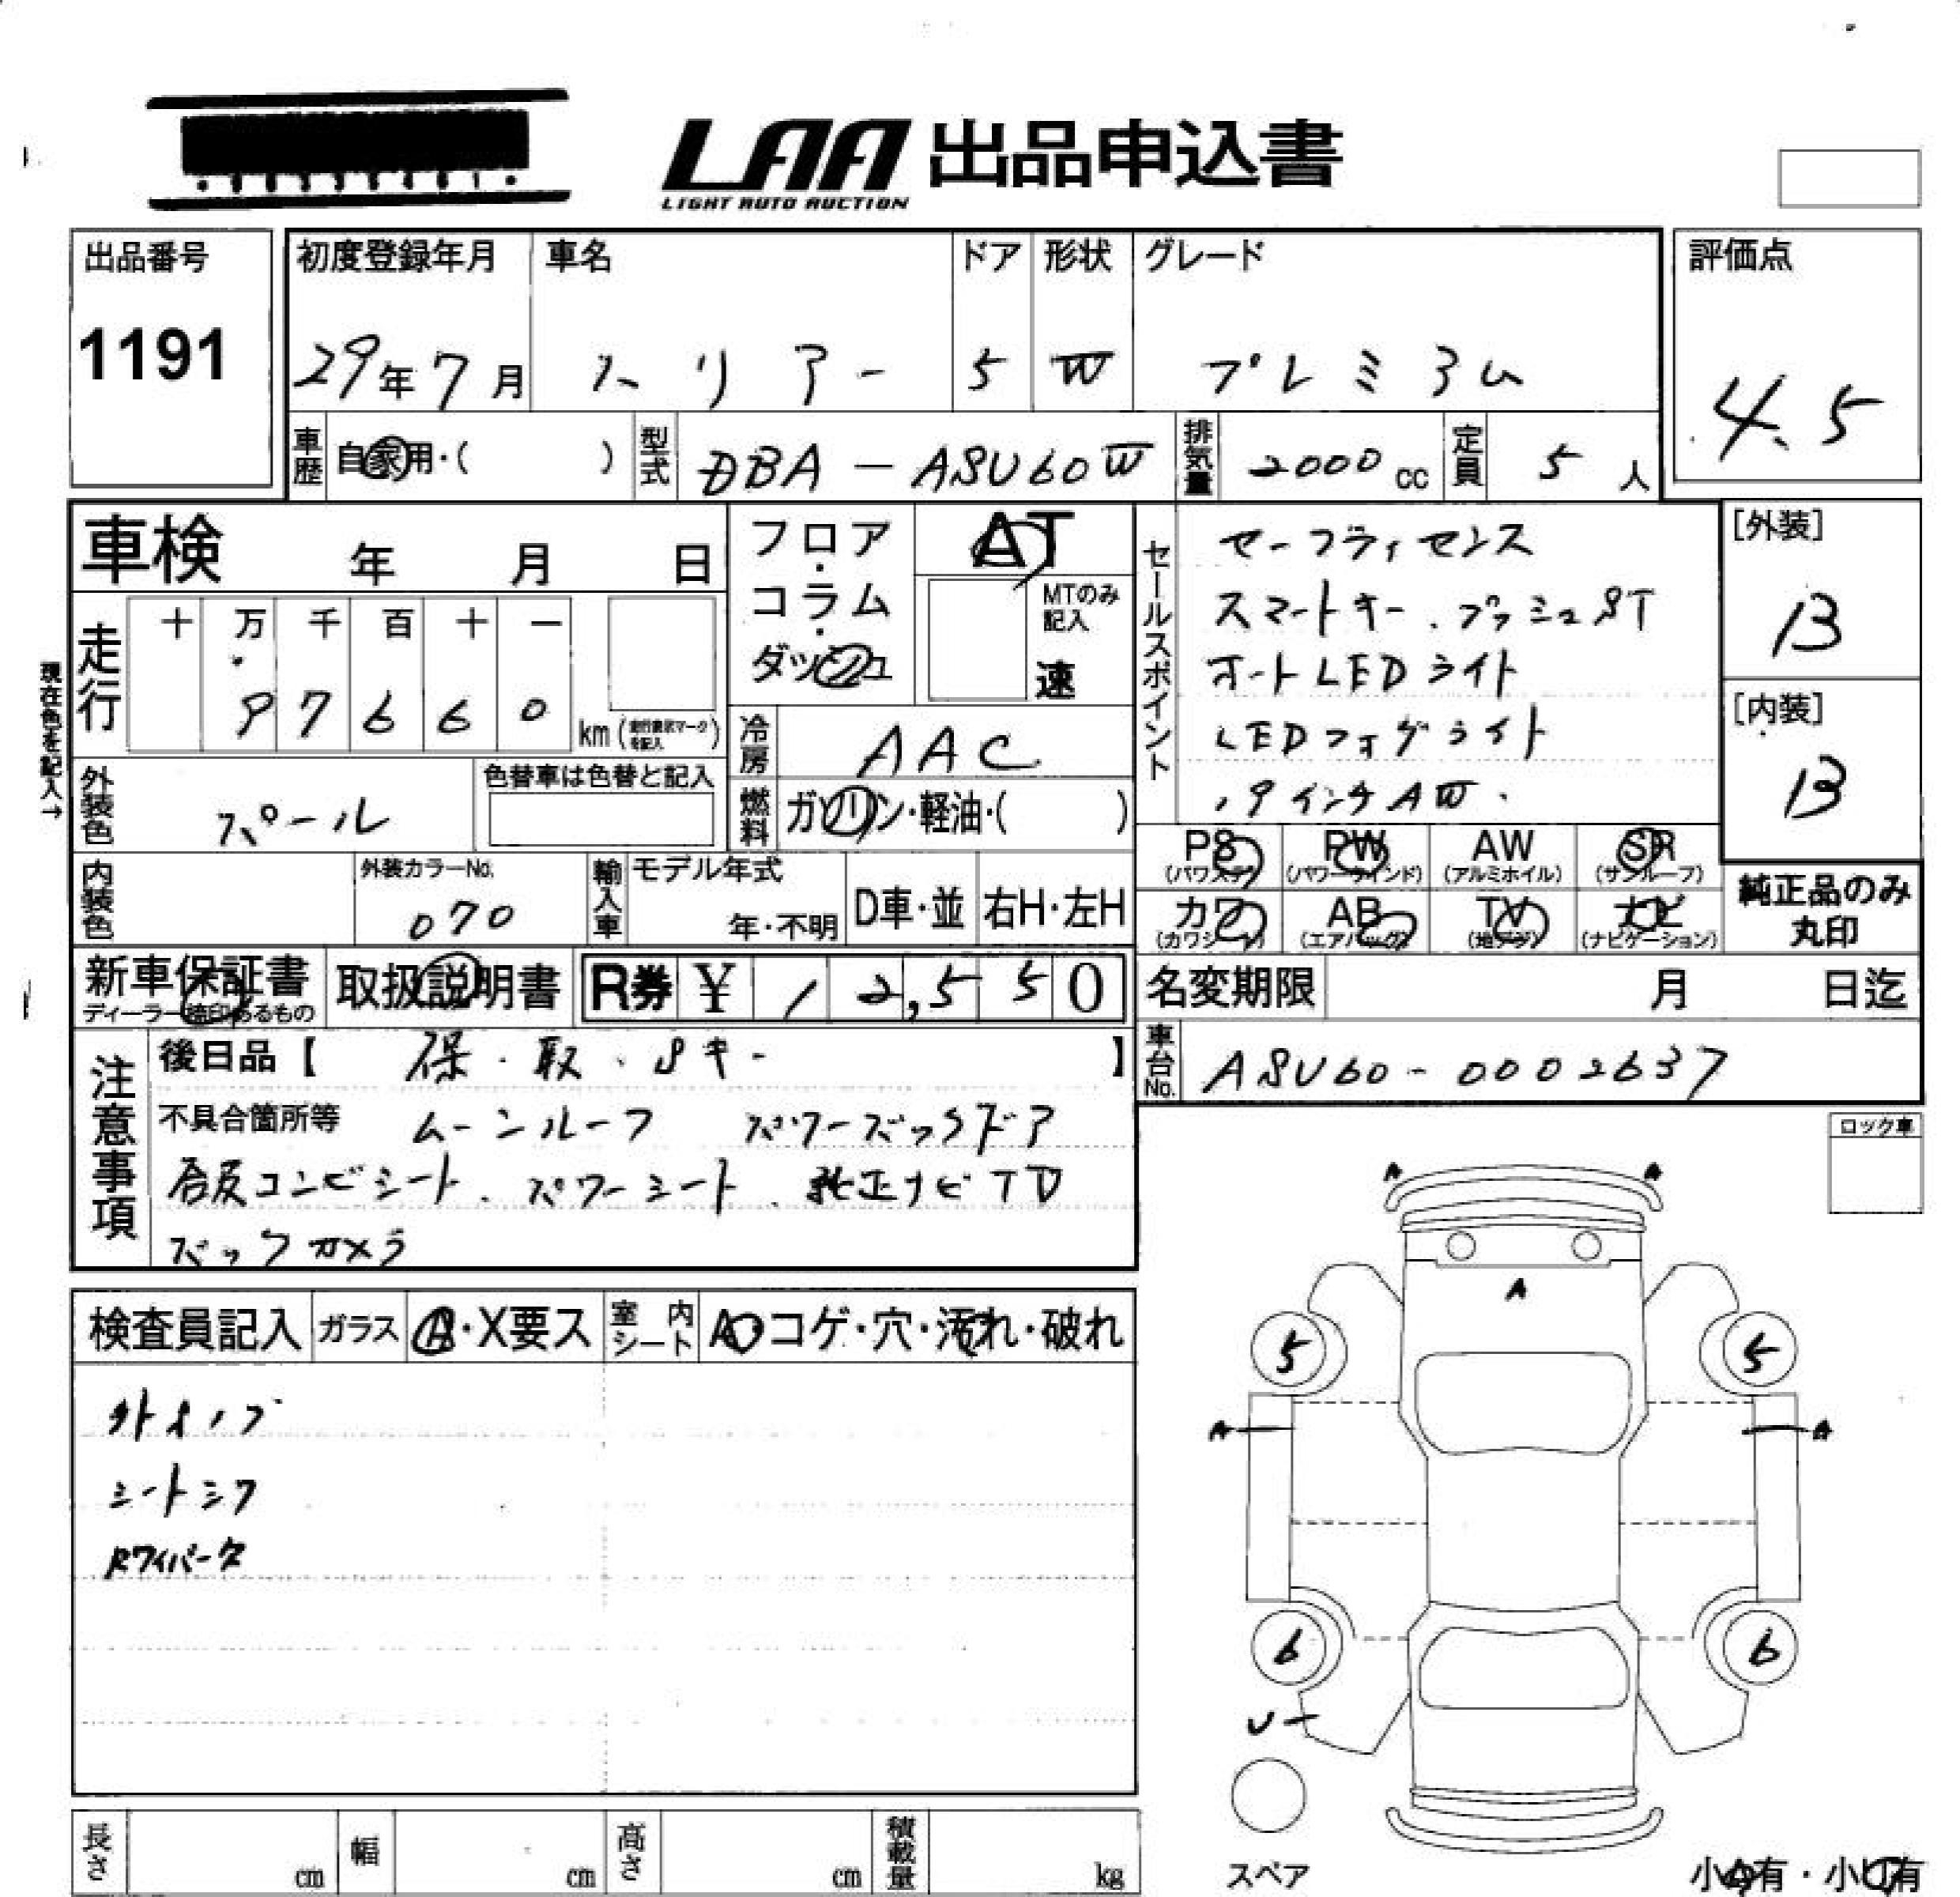 LAA 出品申込書
LIGHT AUTO AUCTION
出品番号
1191
初度登録年月 車名 ドア 形状 グレード
29年7月 ハリアー 5 W プレミアム
評価点
4.5
車歴 自家用・( ) 型式 DBA-ASU60W 排気量 2000cc 定員 5人
車検 年 月 日
フロア・コラム・ダッシュ
AT
MTのみ記入
速
走行 十 万 千 百 十 一
97660 km
現在色を記入→
セールスポイント
セーフティセンス
スマートキー.プッシュST
オートLEDライト
LEDフォグライト
19インチAW.
[外装]
B
[内装]
B
冷房 AAC
外装色 パール
色替車は色替と記入
燃料 ガソリン・軽油・( )
内装色
外装カラーNo.
070
輸入車 モデル年式
年・不明
D車・並 右H・左H
PS (パワステ) PW (パワーウインド) AW (アルミホイル) SR (サンルーフ)
カワ (カワシート) AB (エアバック) TV (地デジ) ナビ (ナビゲーション)
純正品のみ
丸印
新車保証書
ディーラー捺印あるもの
取扱説明書
R券 ¥ 12,550
名変期限 月 日迄
車台No. ASU60-0002637
注意事項
後日品【 保.取.Sキー 】
不具合箇所等 ムーンルーフ パワーバックドア
合皮コンビシート.パワーシート.純正ナビTV
バックカメラ
ロック車
検査員記入 ガラス A・X要ス 室内シート A・コゲ・穴・汚れ・破れ
シートシワ
RワイパーX
A A
A
5 5
A A
6 6
U
スペア
長さ cm 幅 cm 高さ cm 積載量 kg
小A有・小U有